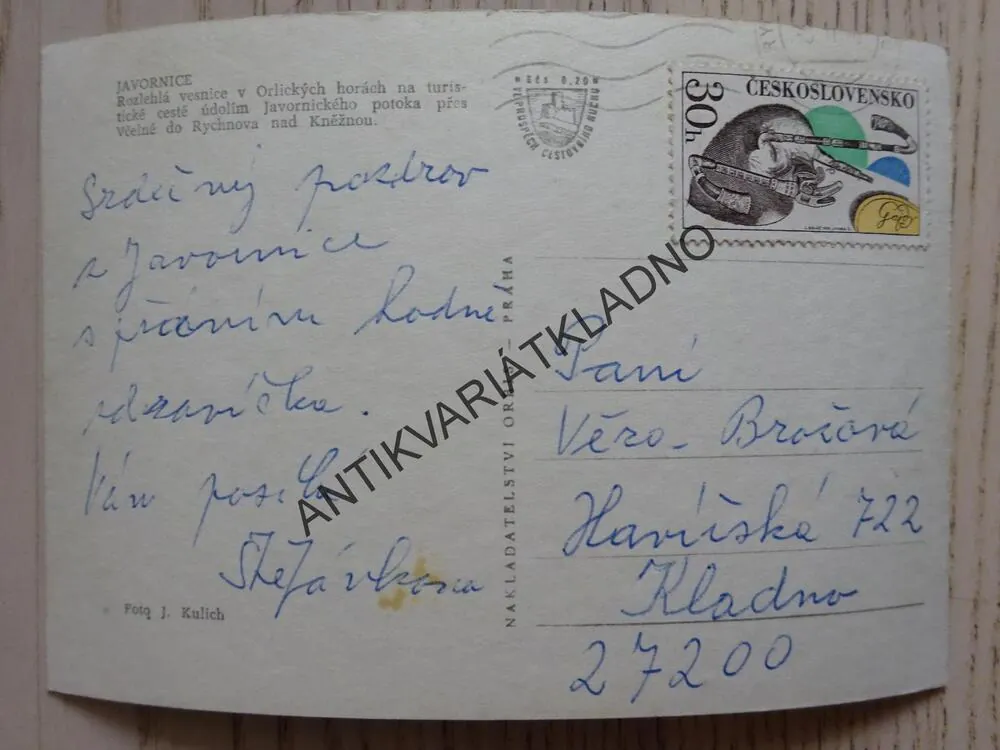 JAVORNICE
Rozlehlá vesnice v Orlických horách na turis-
tické cestě údolím Javornického potoka přes
Včelné do Rychnova nad Kněžnou.
Kčs 0,20
VE PROSPĚCH CESTOVNÍHO RUCHU
30h
ČESKOSLOVENSKO
Srdečný pozdrav
z Javornice
s přáním hodně
zdravíčka.
Vám posílá
Štefánkova
Foto J. Kulich
NAKLADATELSTVÍ ORBIS – PRAHA
Paní
Věra Brožová
Havířská 722
Kladno
27200
ANTIKVARIÁTKLADNO